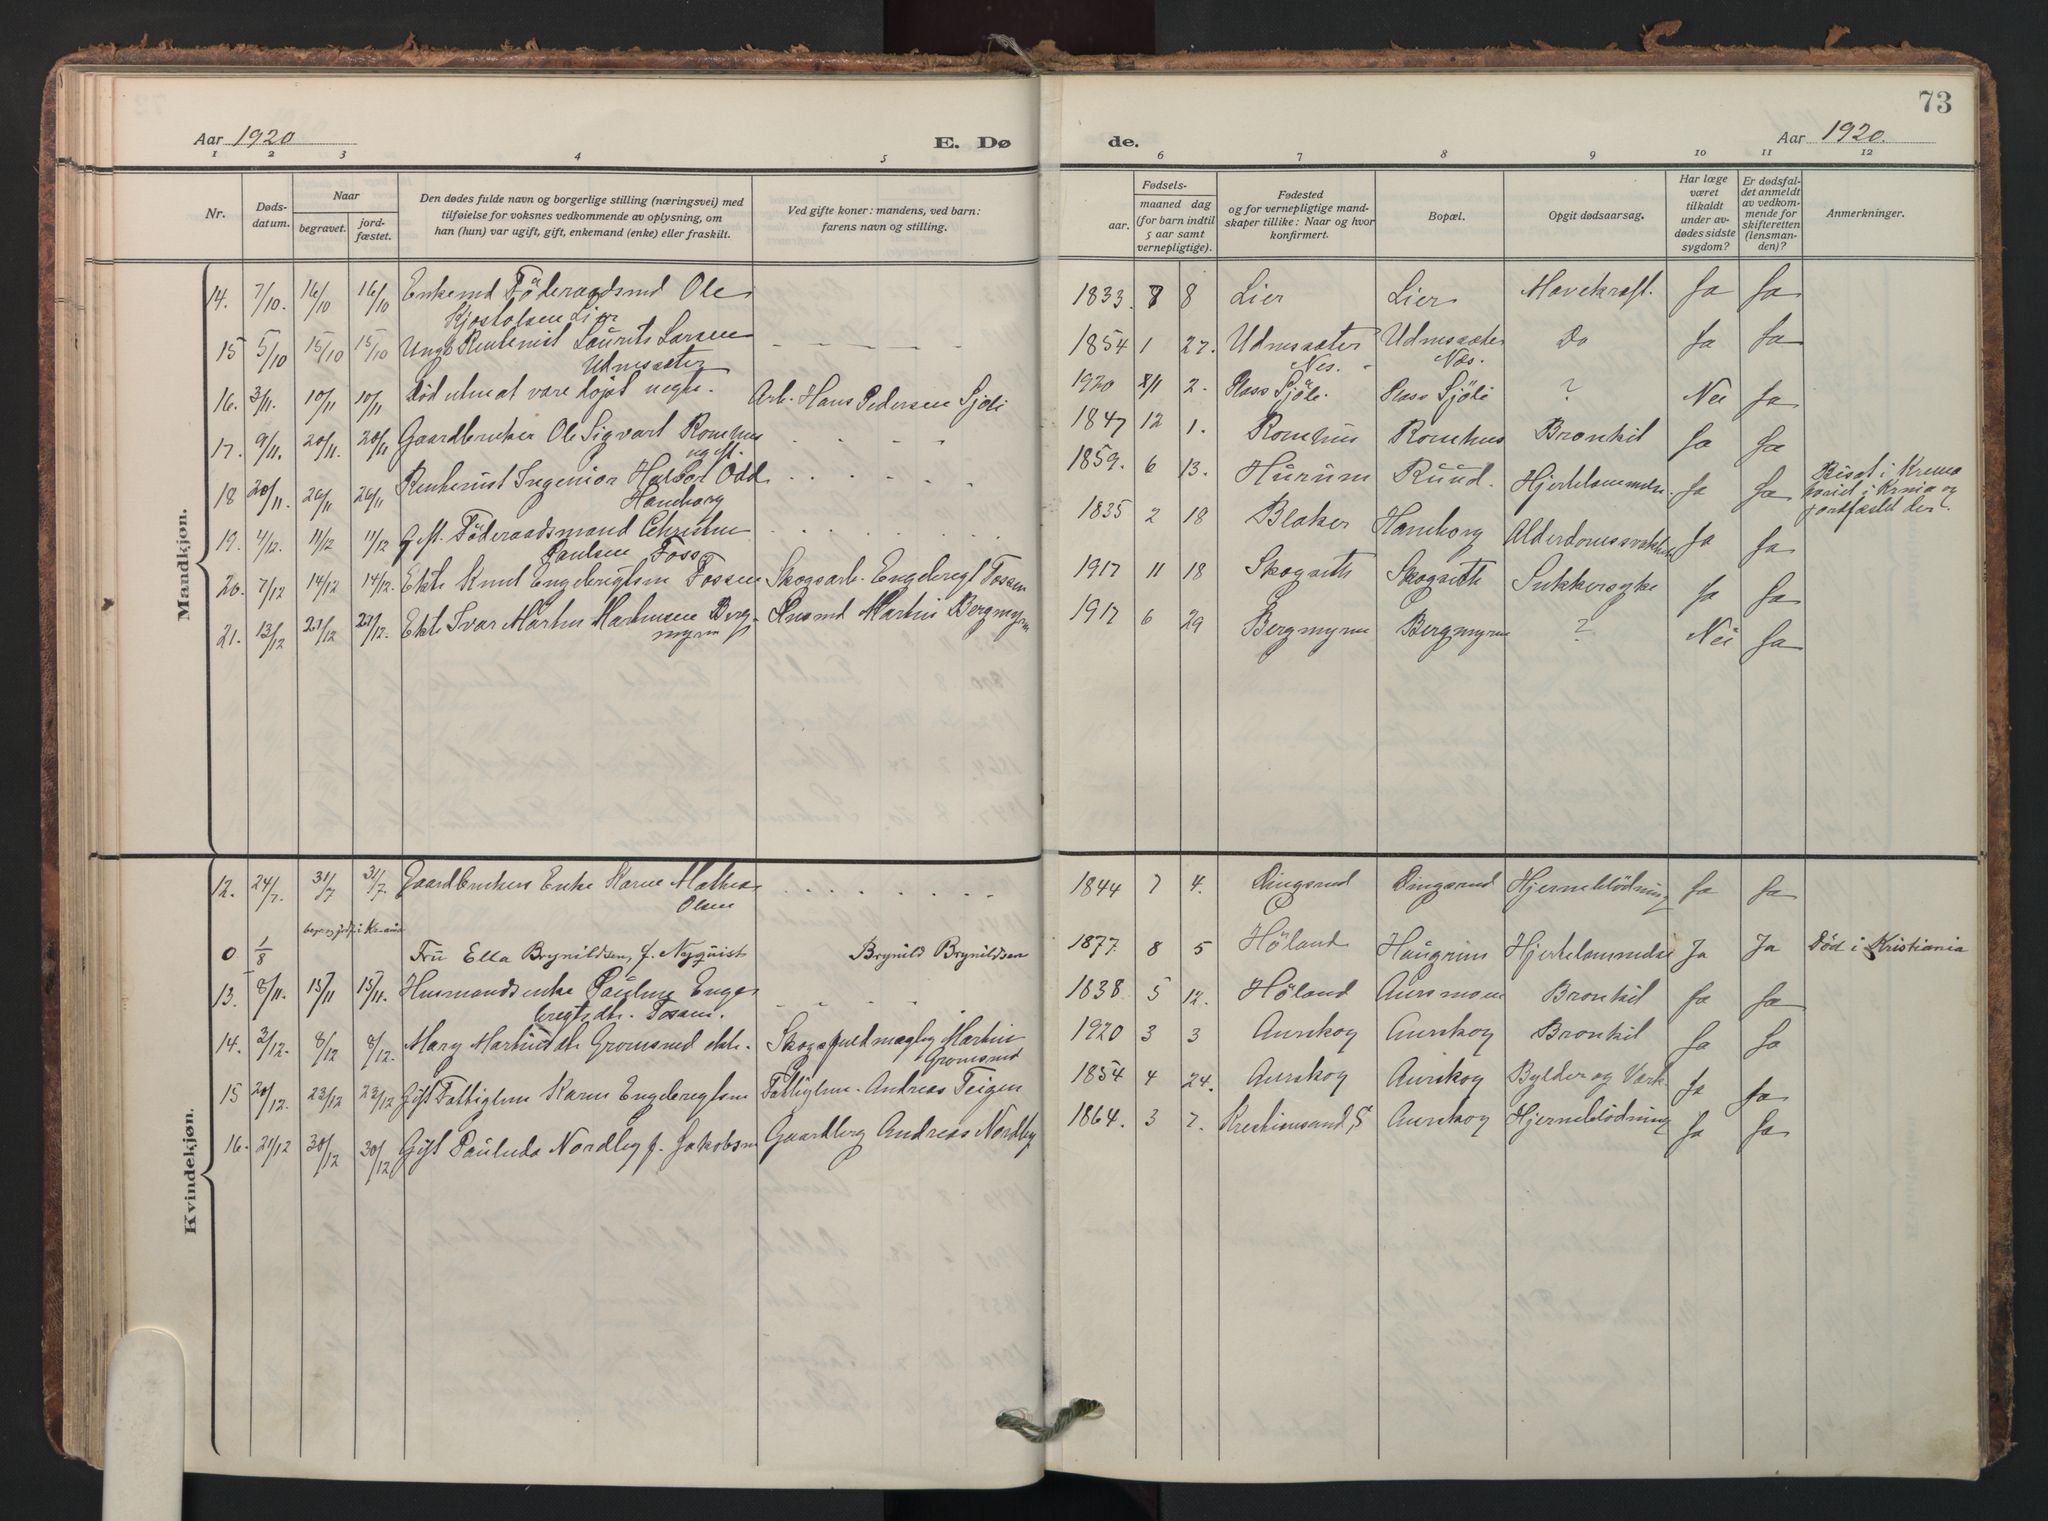 73
Aar 1920
E. Dø
de.
Aar 1920.
1 2 3 4 5 6 7 8 9 10 11 12
Nr.
Døds-
datum.
Naar
begravet.
jord-
fæstet.
Den dødes fulde navn og borgerlige stilling (næringsvei) med
tilføielse for voksnes vedkommende av oplysning, om
han (hun) var ugift, gift, enkemand (enke) eller fraskilt.
Ved gifte koner: mandens, ved barn:
farens navn og stilling.
Fødsels-
aar.
maaned dag
(for barn indtil
5 aar samt
vernepligtige).
Fødested
og for vernepligtige mand-
skaper tillike: Naar og hvor
konfirmert.
Bopæl.
Opgit dødsaarsag.
Har læge
været
tilkaldt
under av-
dødes sidste
sygdom?
Er dødsfal-
det anmeldt
av vedkom-
mende for
skifteretten
(lensman-
den)?
Anmerkninger.
Mandkjøn.
14. 7/10. 16/10 16/10 Enkemd Föderaadsmd Ole 1833 8 8 Lier Lier Mavekræft. Ja Ja
Kjostolsen Lier
15 5/10 15/10 15/10 Ungk. Rentenist Laurits Larsen 1854 1 27. Udnessæter Udnessæter Do Ja Ja
Udnessæter Nes. Næs.
16. 3/11. 10/11 10/11 Död uten at være döpt Arb. Hans Pedersen Sjöli 1920 2. Plass Sjöli. Plass Sjöli ? Nei Ja
17. 9/11. 20/11. 20/11 Gaardbruker Ole Sigvart Romhus 1847 12 1. Romhus Romhus Bronkit Ja Ja
ugift.
18 20/11. 26/11 26/11 Rentenist Ingeniör Halvor Odd 1859. 6 13. Hurum Ruud. Hjertelammelse Ja Ja Bisat i Krema
Haneborg toriet i Krnia og
jordfæstet der.
19. 4/12. 11/12 11/12 Gift. Föderaadsmand Christen 1835 2 18 Blaker Haneborg Alderdomssvakhet Ja Ja
Paulsen Foss
20. 7/12 14/12 14/12. Ekte Knut Engebregtsen Fossen Skogsarb. Engebregt Fossen 1917 11 18 Skogseth Skogseth Sukkersyke Ja Ja
21. 13/12 21/12 21/12. Ekte Ivar Martin Martinsen Berg- Martin Bergmyren 1917 6 29 Bergmyren Bergmyren ? Nei Ja
myren
Kvindekjøn.
12. 24/7. 31/7 31/7. Gaardbrukers Enke Karen Mathea 1844 7 4. Dingsrud Dingsrud Hjerneblödning Ja Ja
Olsen
begr og jordf. i Kr.ania
0 1/8 Fru Ella Brynildsen, f. Nyquist Brynild Brynildsen 1877 8 5 Höland Haugrim Hjertelammelse Ja Ja Død i Kristiania
13. 8/11. 15/11 15/11. Husmandsenke Pauline Enge- 1838 5 12. Höland Aursmoen Bronkit Ja Ja
bregtsdtr. Fossen.
14. 2/12. 8/12 8/12. Mary Martinsdtr Gromsrud ekte. Martin 1920 3 3 Aurskog Aurskog Bronkit Ja Ja
Gromsrud
15 20/12. 23/12 23/12 Gift Fattiglem Karen Engebregtsen Fattiglem. Andreas Teigen 1854 4 24. Aurskog Aurskog Bylder og Værk. Ja Ja
16. 21/12 30/12 30/12 Gift Paulude Nordby f. Jakobsen Gaardbrg Andreas Nordby 1864. 3 7. Kristiansand S Aurskog Hjerneblödning Ja Ja